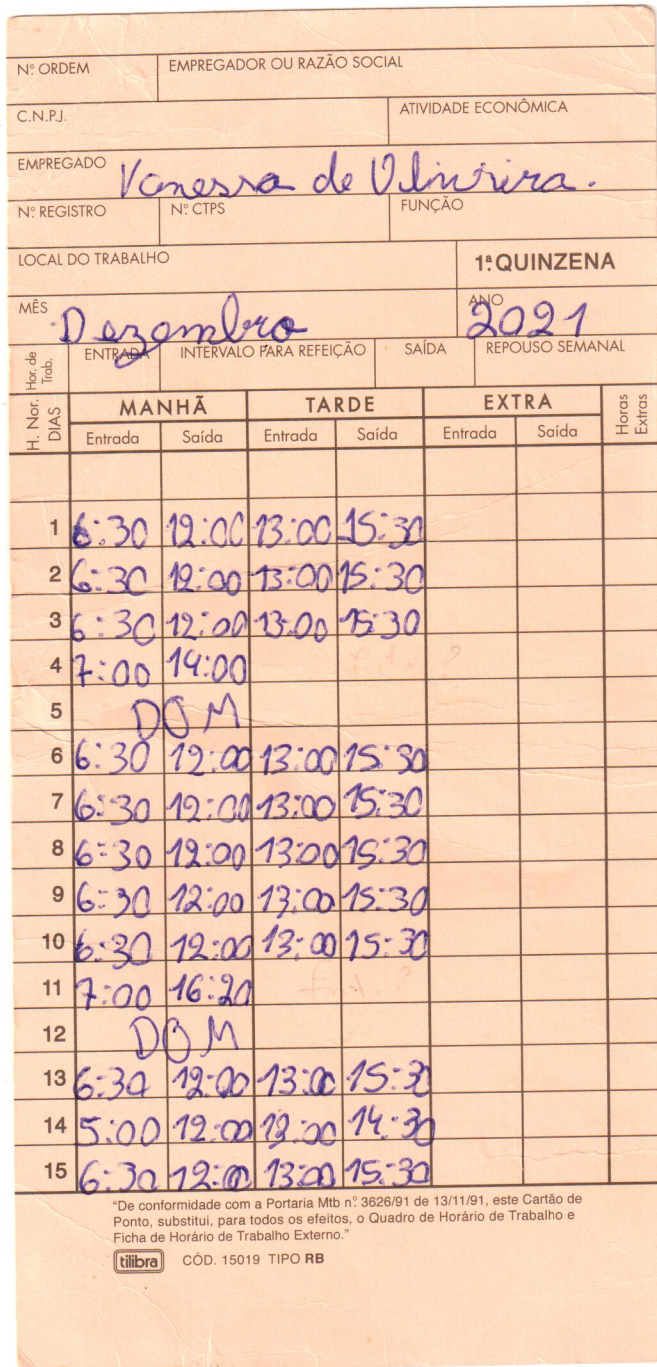 Nº ORDEM EMPREGADOR OU RAZÃO SOCIAL
C.N.P.J. ATIVIDADE ECONÔMICA
EMPREGADO Vanessa de Oliveira.
Nº REGISTRO Nº CTPS FUNÇÃO
LOCAL DO TRABALHO 1ª QUINZENA
MÊS Dezembro ANO 2021
Hor. de Trab. ENTRADA INTERVALO PARA REFEIÇÃO SAÍDA REPOUSO SEMANAL
H. Nor. DIAS MANHÃ TARDE EXTRA Horas Extras
Entrada Saída Entrada Saída Entrada Saída
1 6:30 12:00 13:00 15:30
2 6:30 12:00 13:00 15:30
3 6:30 12:00 13:00 15:30
4 7:00 14:00
5 DOM
6 6:30 12:00 13:00 15:30
7 6:30 12:00 13:00 15:30
8 6:30 12:00 13:00 15:30
9 6:30 12:00 13:00 15:30
10 6:30 12:00 13:00 15:30
11 7:00 16:20
12 DOM
13 6:30 12:00 13:00 15:30
14 5:00 12:00 14:30
15 6:30 12:00 13:00 15:30
"De conformidade com a Portaria Mtb nº 3626/91 de 13/11/91, este Cartão de
Ponto, substitui, para todos os efeitos, o Quadro de Horário de Trabalho e
Ficha de Horário de Trabalho Externo."
tilibra CÓD. 15019 TIPO RB